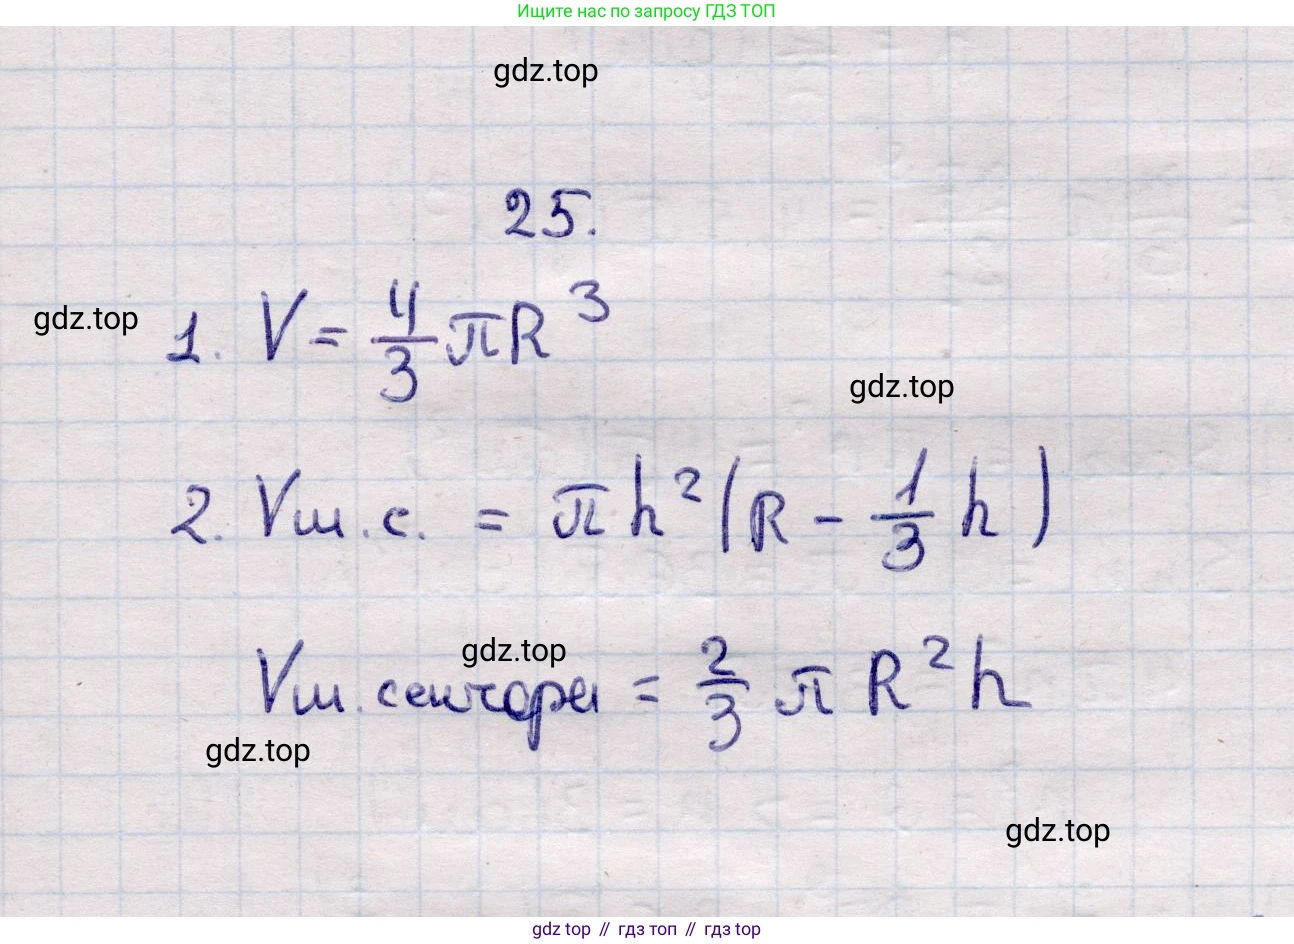 Ищите нас по запросу ГДЗ ТОП
gdz.top
25.
gdz.top
1. V = 4/3 πR³
gdz.top
2. Vш.с. = πh²(R - 1/3 h)
gdz.top
Vш.сектора = 2/3 π R²h
gdz.top
gdz.top
gdz top // гдз топ // гдз top